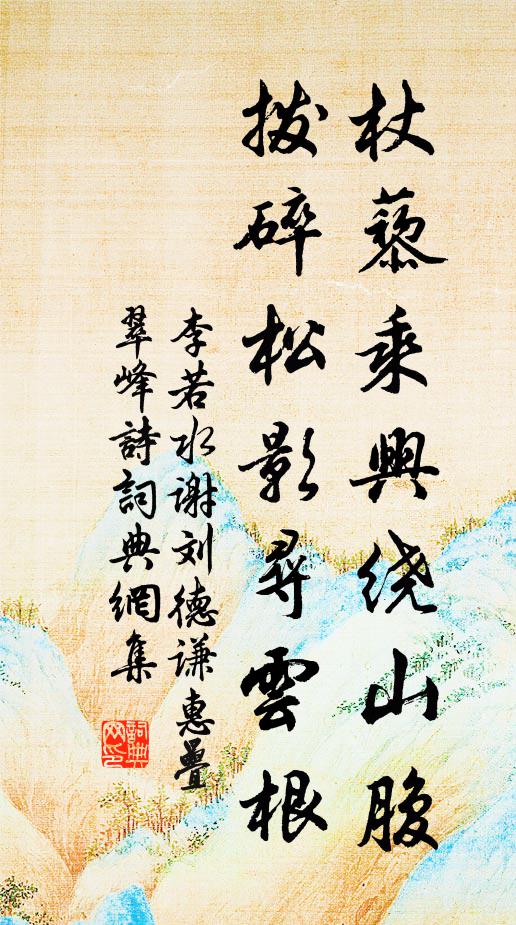 杖藜乘興绕山腹
拨碎松影尋雲根
李若水谢刘德谦惠疊
翠峰詩詞典網集
詞典網印